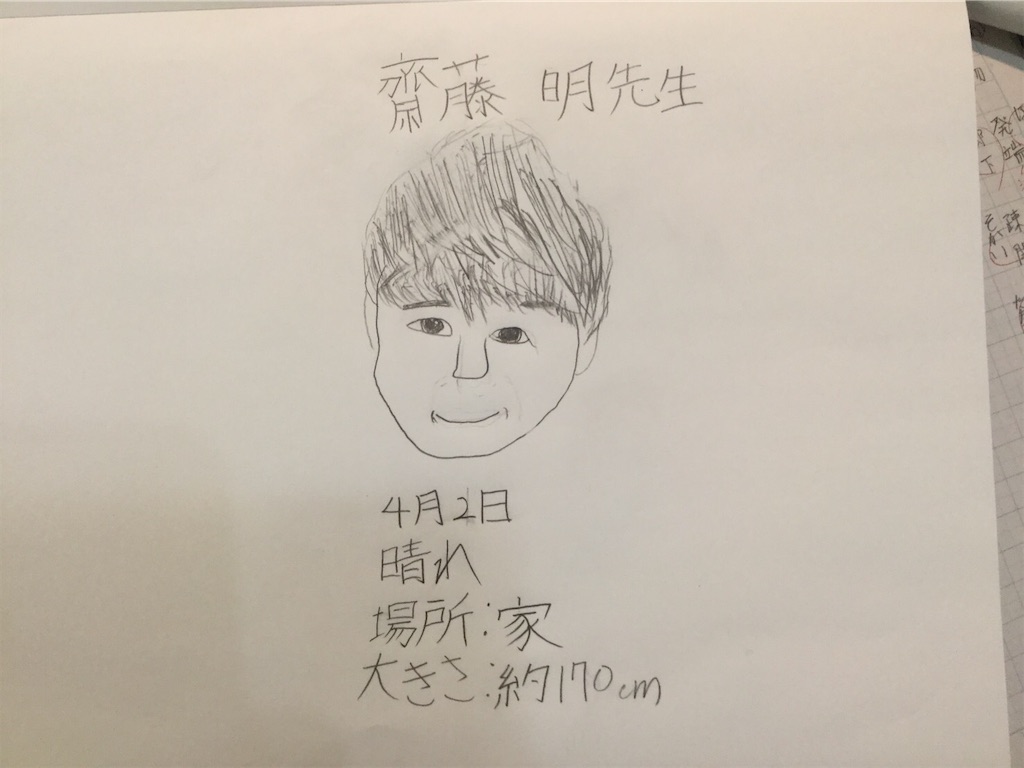 齋藤 明先生
4月2日
晴れ
場所:家
大きさ:約170cm